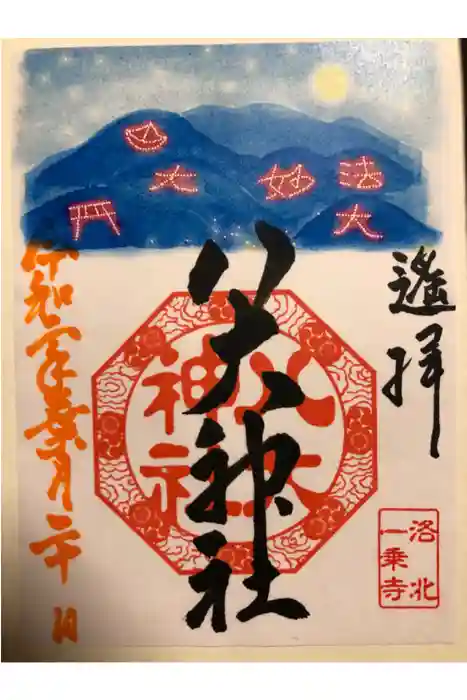 大
妙
法
大
遙拝
八大神社
八大
神社
洛北
一乗寺
令和二年葉月二十日